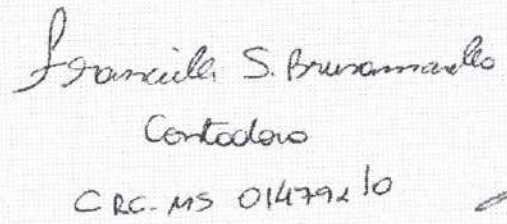 Franciele S. Brusamarello
Contadora
CRC-MS 014792/0